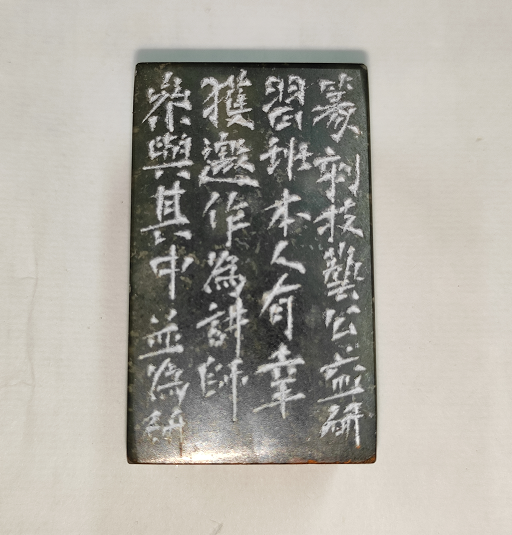 篆刻技藝公益研
習班本人有幸
獲選作為講師
參與其中並為研